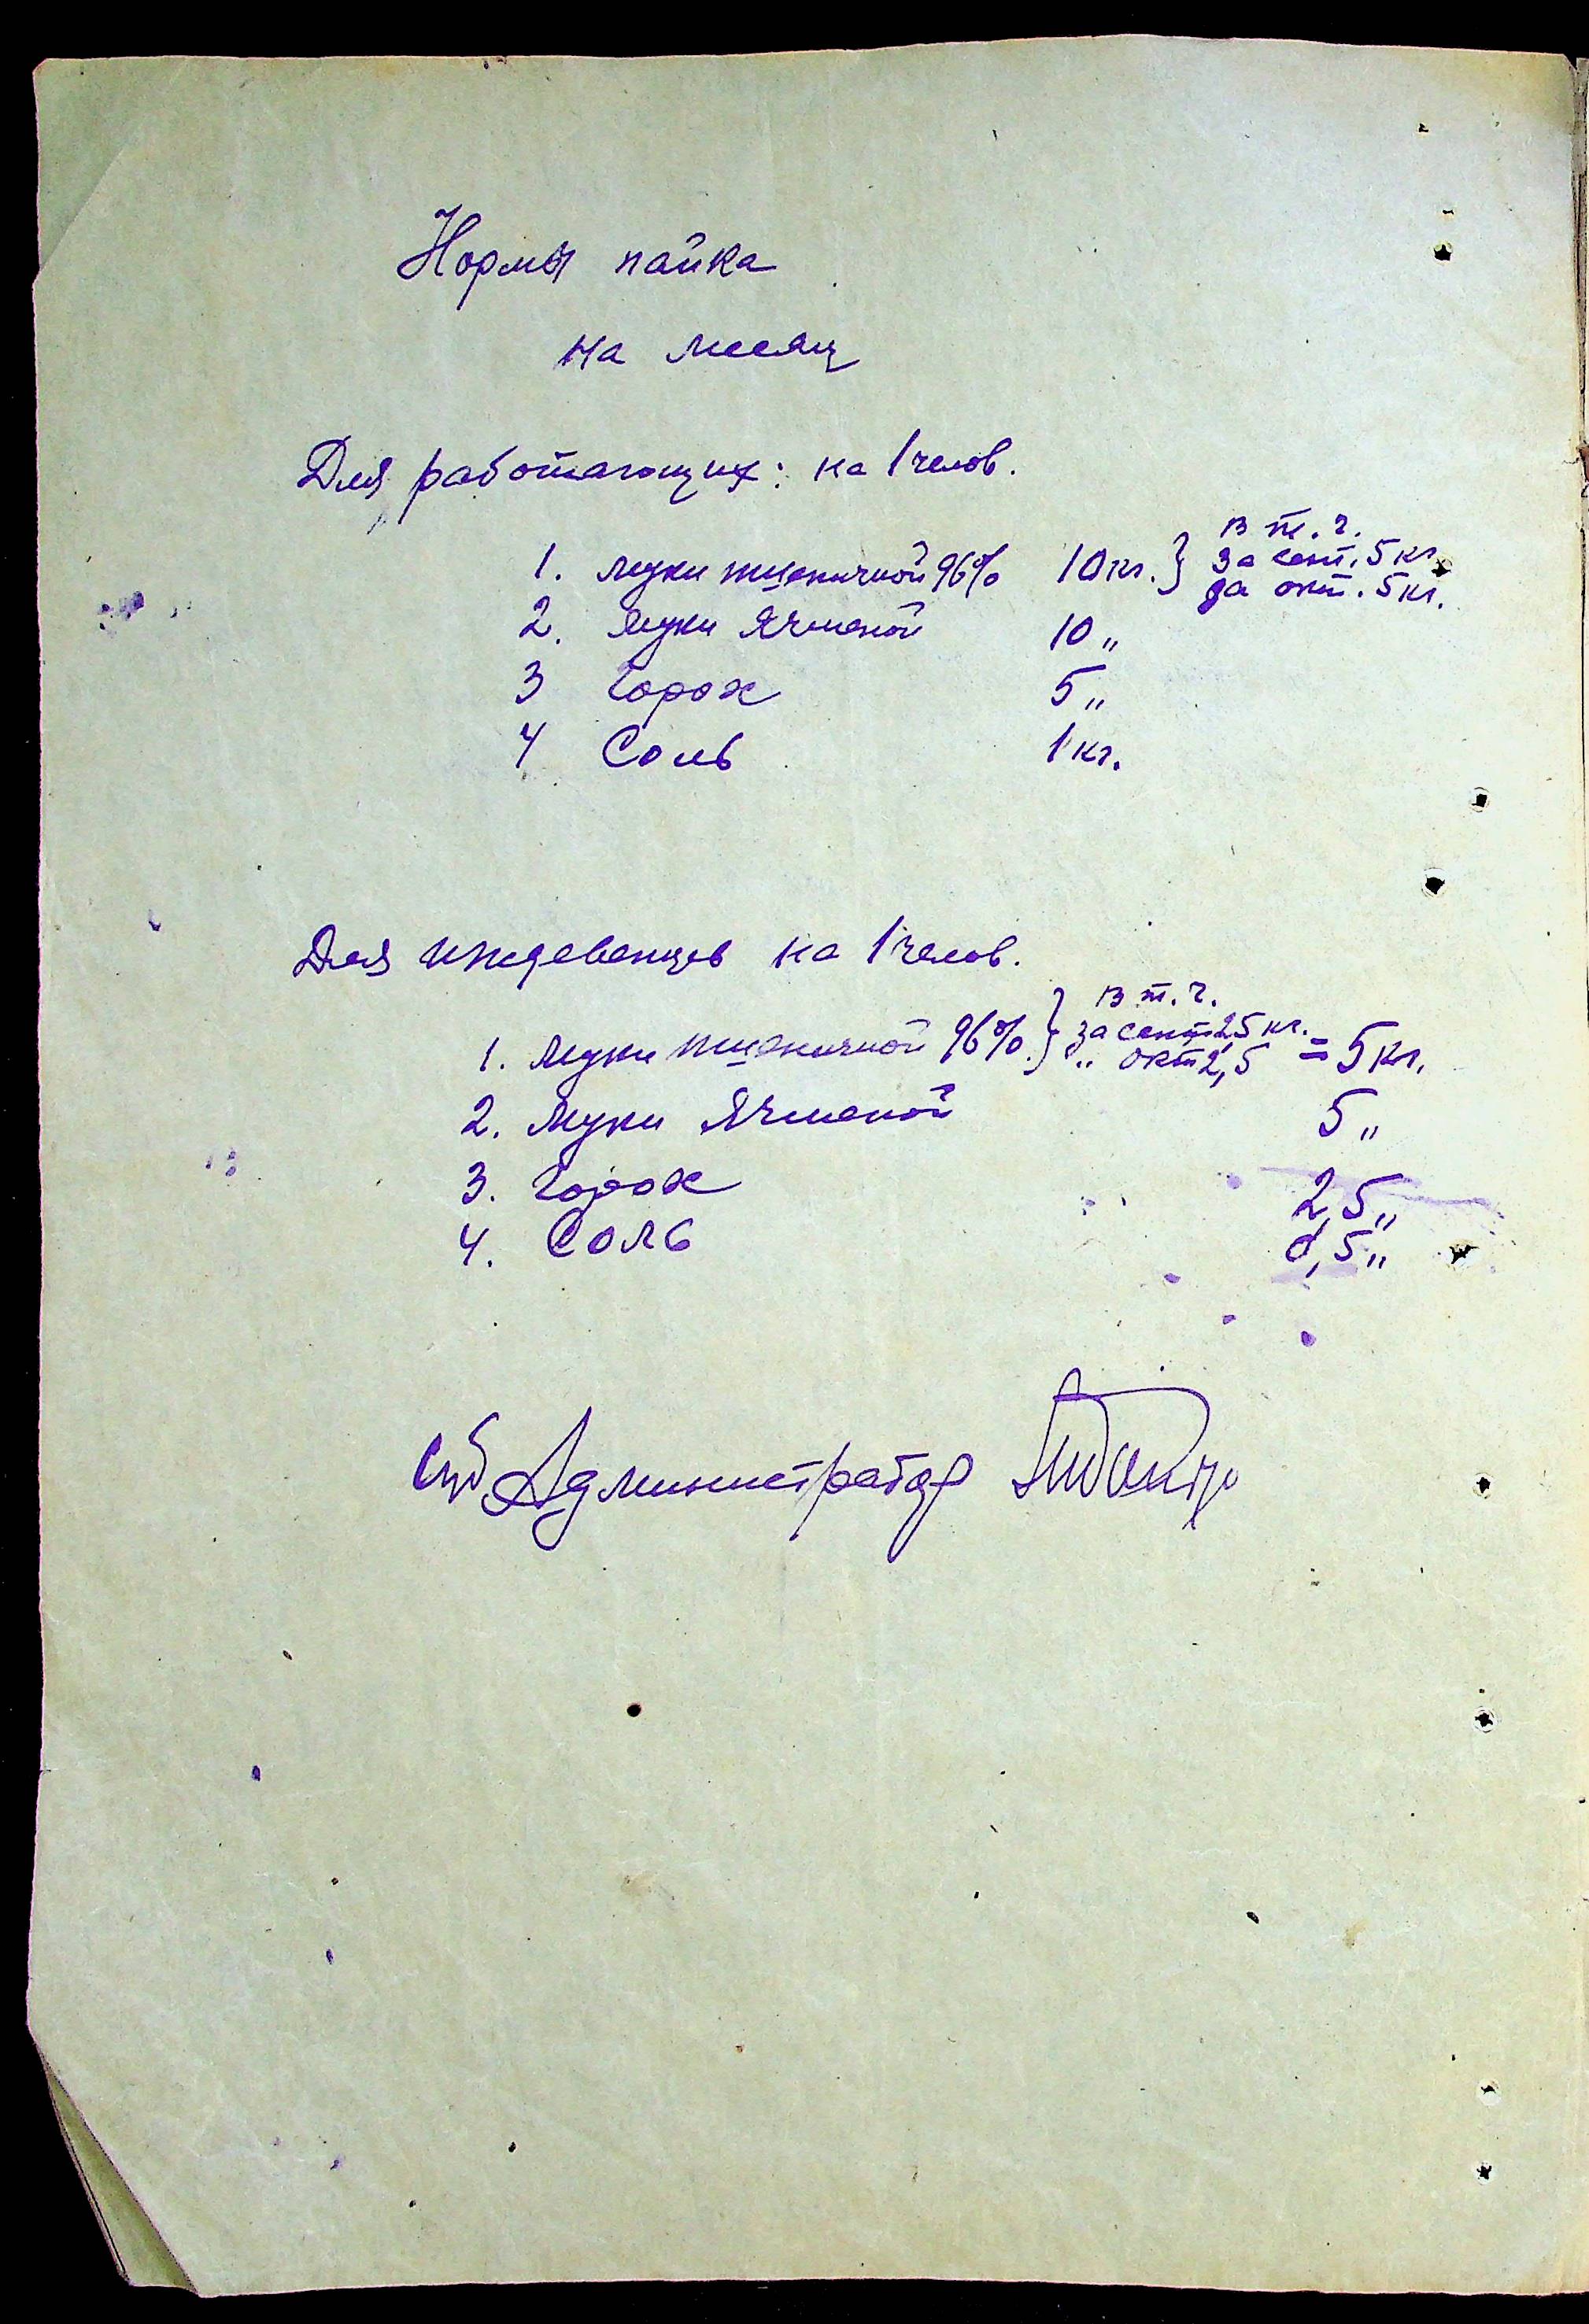 Нормы пайка
на месяц
Для работающих: на 1 челов.
1. муки пшеничной 96% 10 кг. } в т. ч. за сент. 5 кг. за окт. 5 кг.
2. Муки Ячменой 10 "
3 Горох 5 "
4 Соль 1 кг.
Для иждевенцев на 1 челов.
1. Муки пшеничной 96%. } в т. ч. за сент 2,5 кг. " окт 2,5 = 5 кг.
2. Муки Ячменой 5 "
3. Горох 2,5 "
4. Соль 0,5 "
Администратор